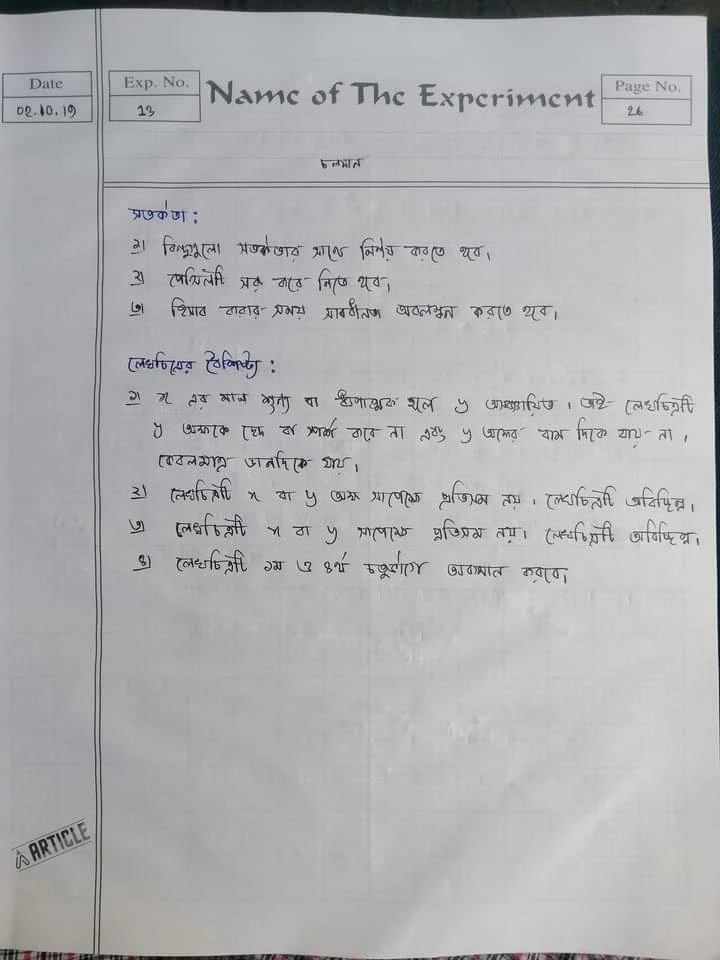 Date
02.10.19
Exp. No.
13
Name of The Experiment
Page No.
26
চলমান
সতর্কতা :
১। বিন্দুগুলো সতর্কতার সাথে নির্ণয় করতে হবে।
২। পেন্সিলটি সরু করে নিতে হবে।
৩। হিসাব করার সময় সাবধানতা অবলম্বন করতে হবে।
লেখচিত্রের বৈশিষ্ট্য :
১। x এর মান শূন্য বা ঋণাত্মক হলে y অসংজ্ঞায়িত। তাই লেখচিত্রটি
y অক্ষকে ছেদ বা স্পর্শ করে না এবং y অক্ষের বাম দিকে যায় না।
কেবলমাত্র ডানদিকে যায়।
২। লেখচিত্রটি x বা y অক্ষ সাপেক্ষে প্রতিসম নয়। লেখচিত্রটি অবিচ্ছিন্ন।
৩। লেখচিত্রটি x বা y সাপেক্ষে প্রতিসম নয়। লেখচিত্রটি অবিচ্ছিন্ন।
৪। লেখচিত্রটি ১ম ও ৪র্থ চতুর্ভাগে অবস্থান করবে।
ARTICLE